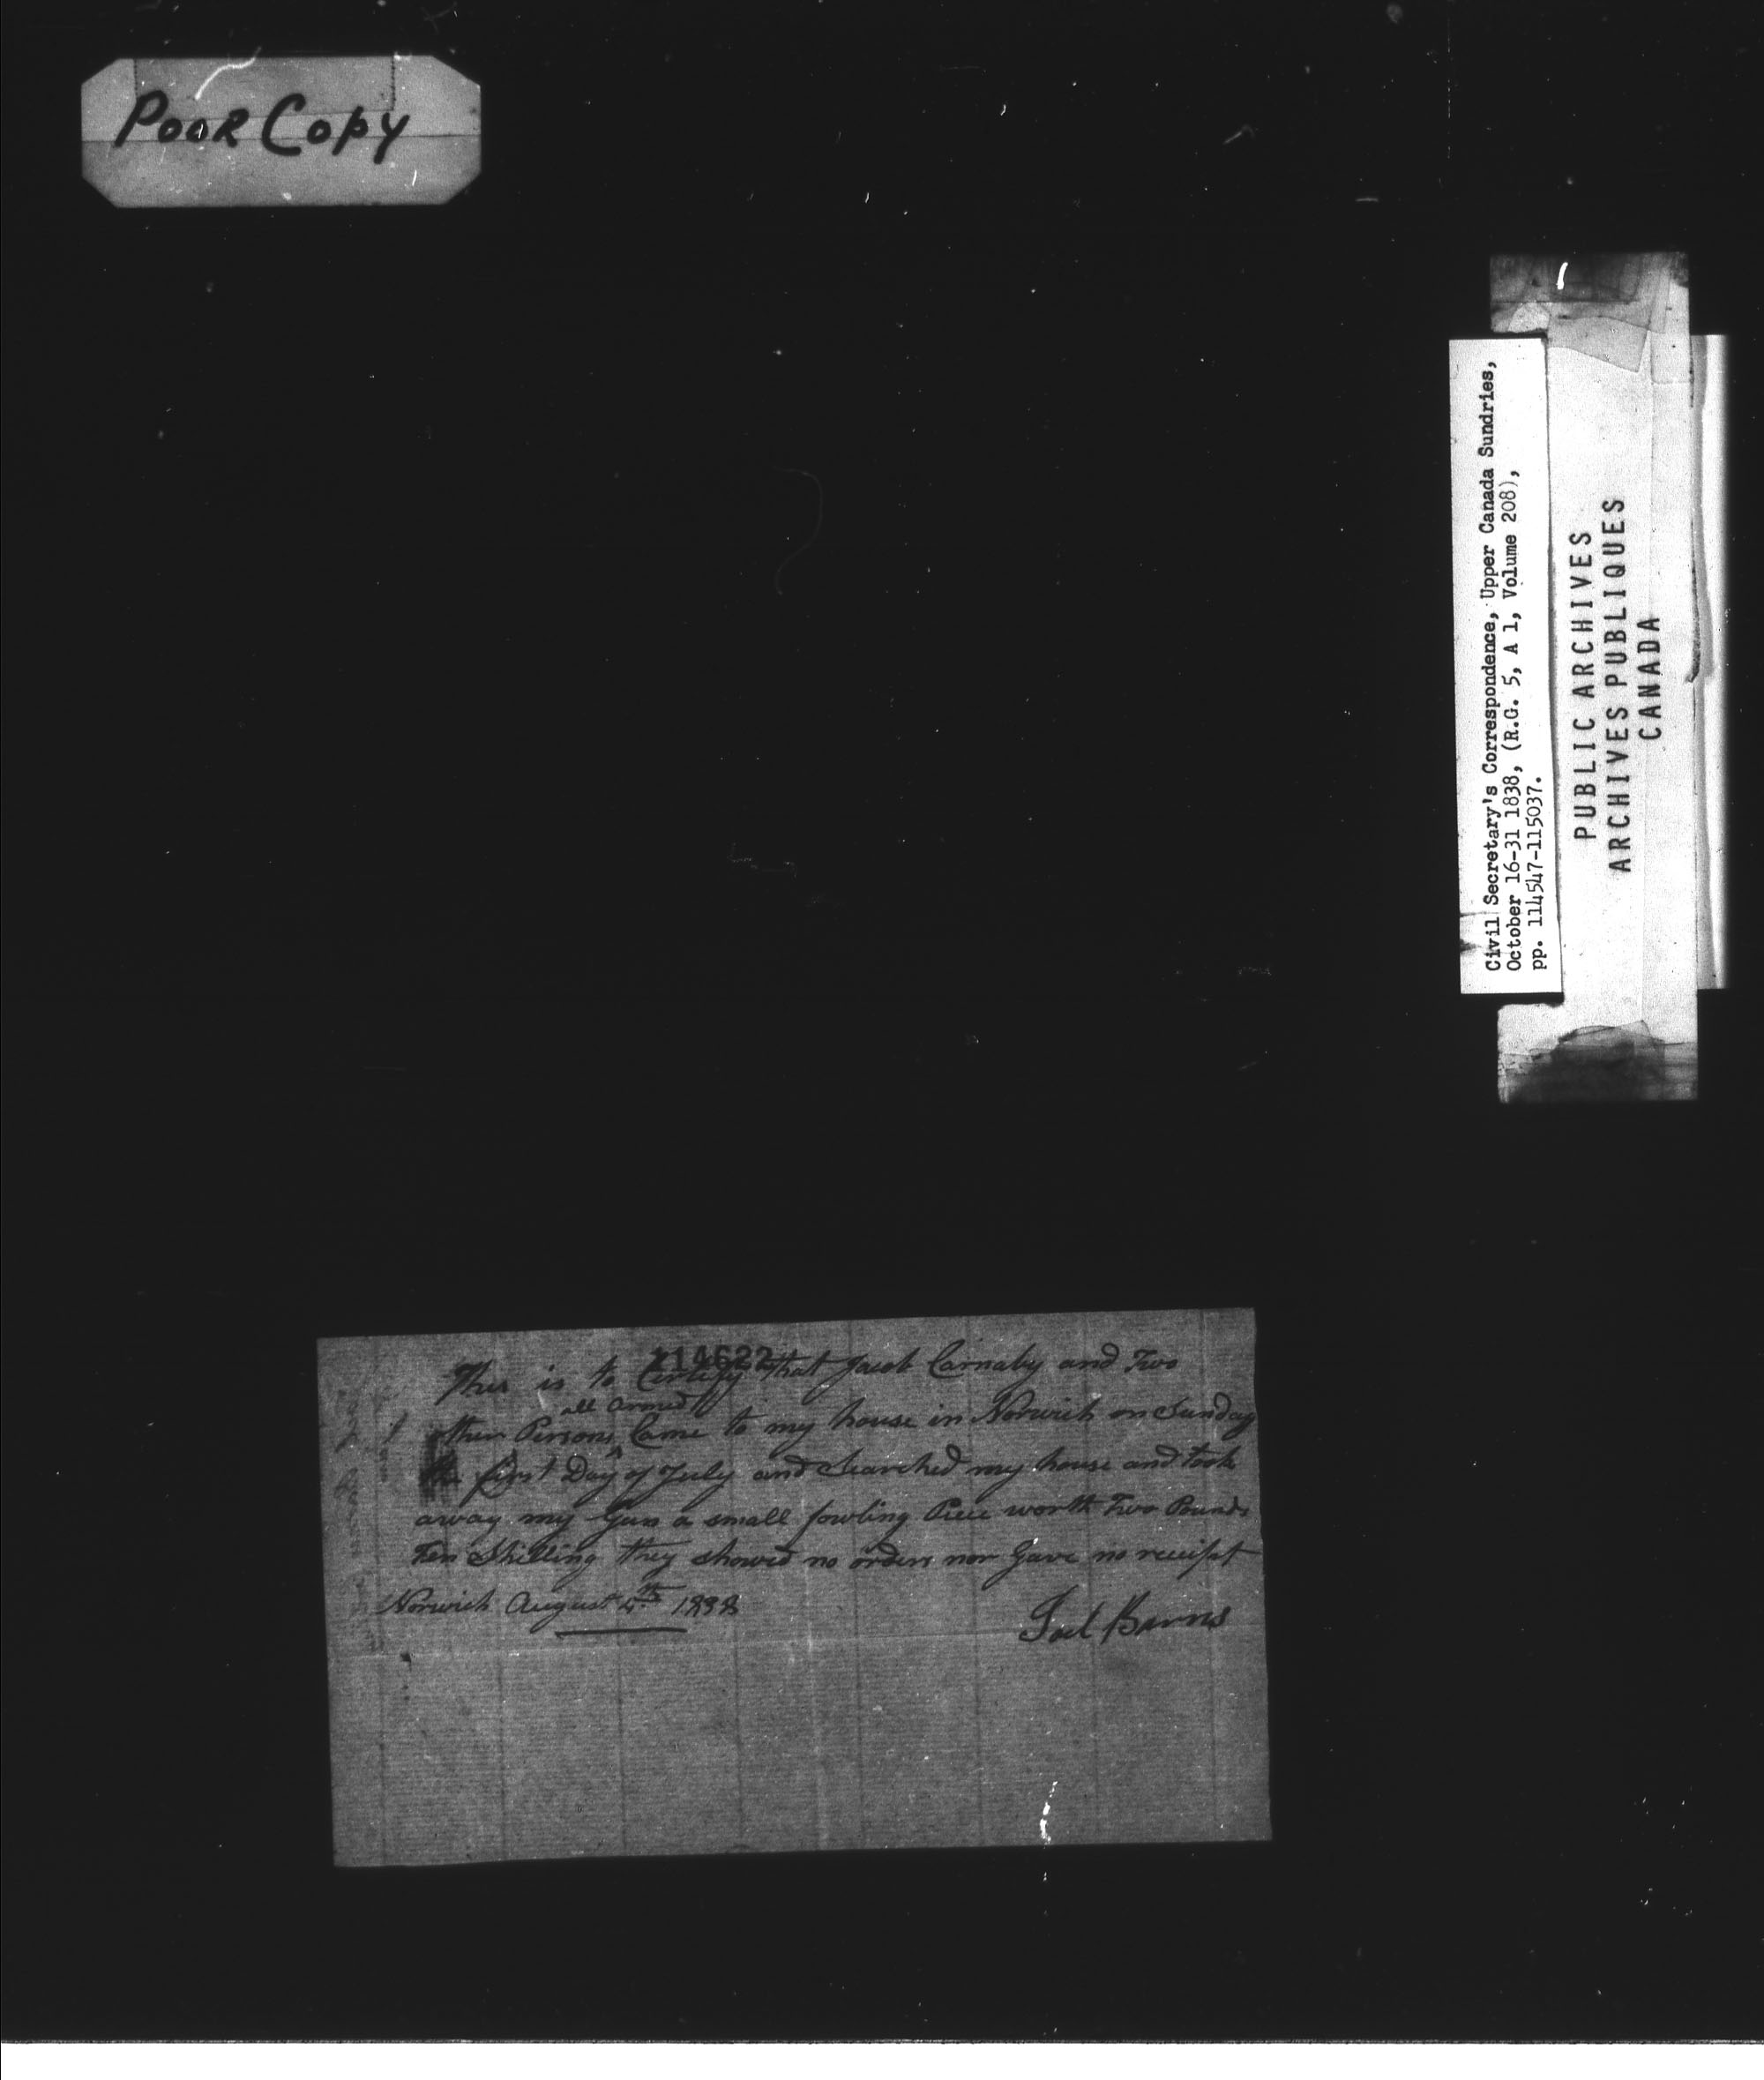 Poor Copy
Civil Secretary's Correspondence, Upper Canada Sundries,
October 16-31 1838, (R.G. 5, A 1, Volume 208),
pp. 114547-115037.
PUBLIC ARCHIVES
ARCHIVES PUBLIQUES
CANADA
114622
This is to Certify that Jacob Carnaby and Two
all armed
other Persons ^ Came to my house in Norwich on Sunday
the first Day of July and Searched my house and took
away my Gun a small fowling Piece worth Two Pounds
Ten Shilling they showed no orders nor Gave no receipt
Norwich August 4th 1838
Joel Barns